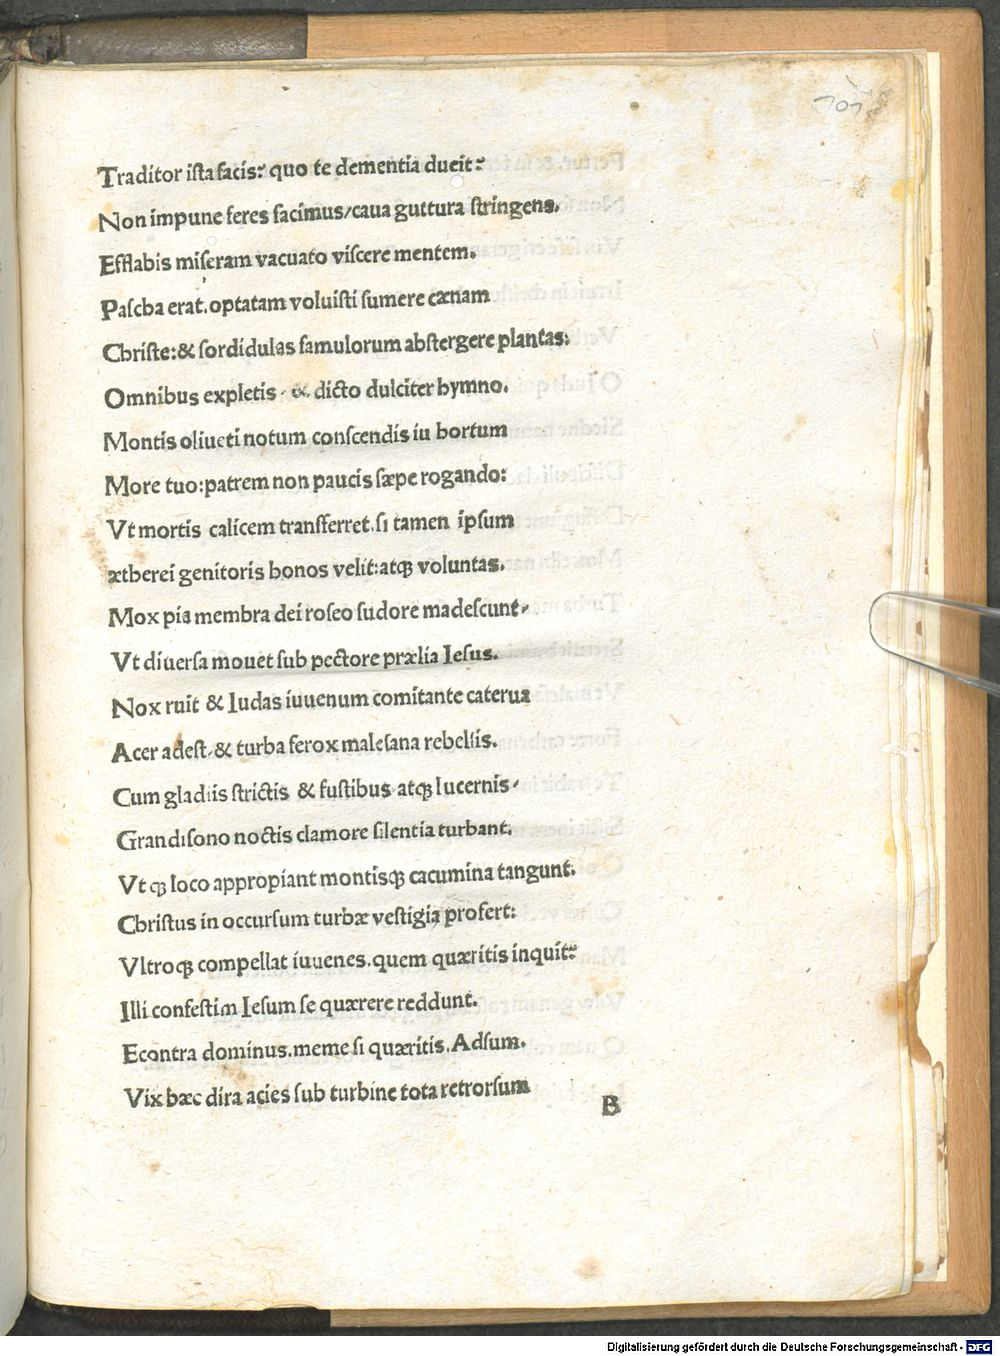 101
Traditor ista facis? quo te dementia ducit?
Non impune feres facimus/caua guttura stringens.
Efflabis miseram vacuato viscere mentem.
Pascha erat. optatam voluisti sumere cænam
Christe: & sordidulas famulorum abstergere plantas:
Omnibus expletis. & dicto dulciter hymno.
Montis oliueti notum conscendis iu hortum
More tuo: patrem non paucis sæpe rogando:
Vt mortis calicem transferret. si tamen ipsum
ætherei genitoris honos velit: atqꝫ voluntas.
Mox pia membra dei roseo sudore madescunt.
Vt diuersa mouet sub pectore prælia Iesus.
Nox ruit & Iudas iuuenum comitante caterua
Acer adest. & turba ferox malesana rebellis.
Cum gladiis strictis & fustibus atqꝫ lucernis.
Grandisono noctis clamore silentia turbant.
Vt qꝫ loco appropiant montisqꝫ cacumina tangunt.
Christus in occursum turbæ vestigia profert:
Vltroqꝫ compellat iuuenes. quem quæritis inquit?
Illi confestim Iesum se quærere reddunt.
Econtra dominus. meme si quæritis. Adsum.
Vix hæc dira acies sub turbine tota retrorsum
B
Digitalisierung gefördert durch die Deutsche Forschungsgemeinschaft - DFG